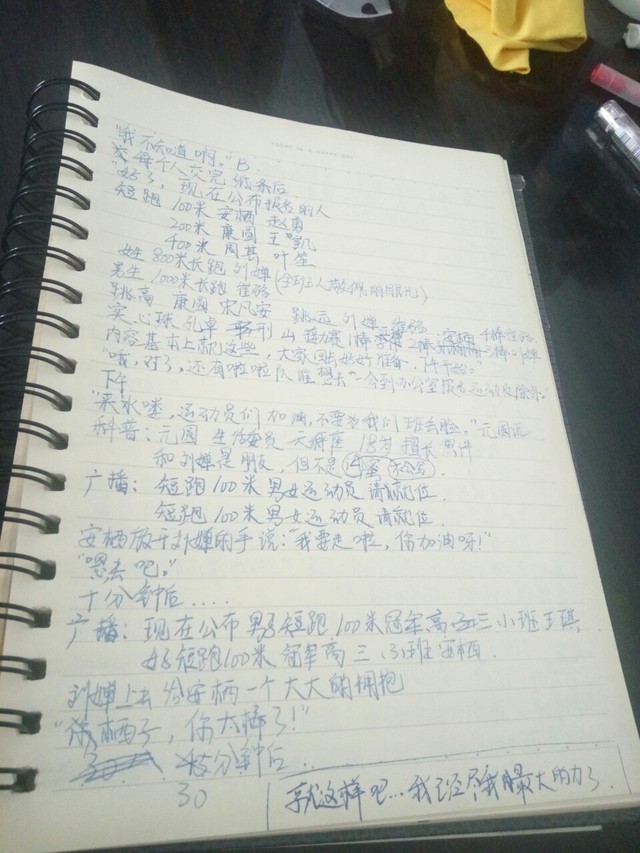 "我不知道啊。"B
等每个人交完纸条后
"好了，现在公布报名的人
短跑 100米 安栖 赵勇
200米 康圆 王凯
400米 周其 叶笙
女生 800米长跑 刘婵 (全班人
男生 1000米长跑 崔
跳高 康圆 宋凡安 跳远 刘婵 崔
实心球 孔 山 接力赛 1棒 2棒 3棒 刘婵 4棒
内容基本上就这些，大家回去好好准备，下午开始。"
"哦，对了，还有啦啦队谁想去一个到办公室报名运动员除外。"
下午
"来水喽，运动员们加油，不要为我们班丢脸。"元圆说
科普：元圆 生活委员 天秤座 18岁 擅长
和刘婵是朋友，但不是
广播：短跑100米男女运动员请就位.
短跑100米男女运动员请就位.
安栖放开刘婵的手说："我要走啦，你加油呀！"
"嗯去吧。"
十分钟后....
广播：现在公布男子短跑100米冠军高三三小班王琪
女子短跑100米冠军高三、3班安栖.
刘婵上去给安栖一个大大的拥抱
栖子，你太棒了！"
分钟后
30
就这样吧...我已经尽我最大的力了.